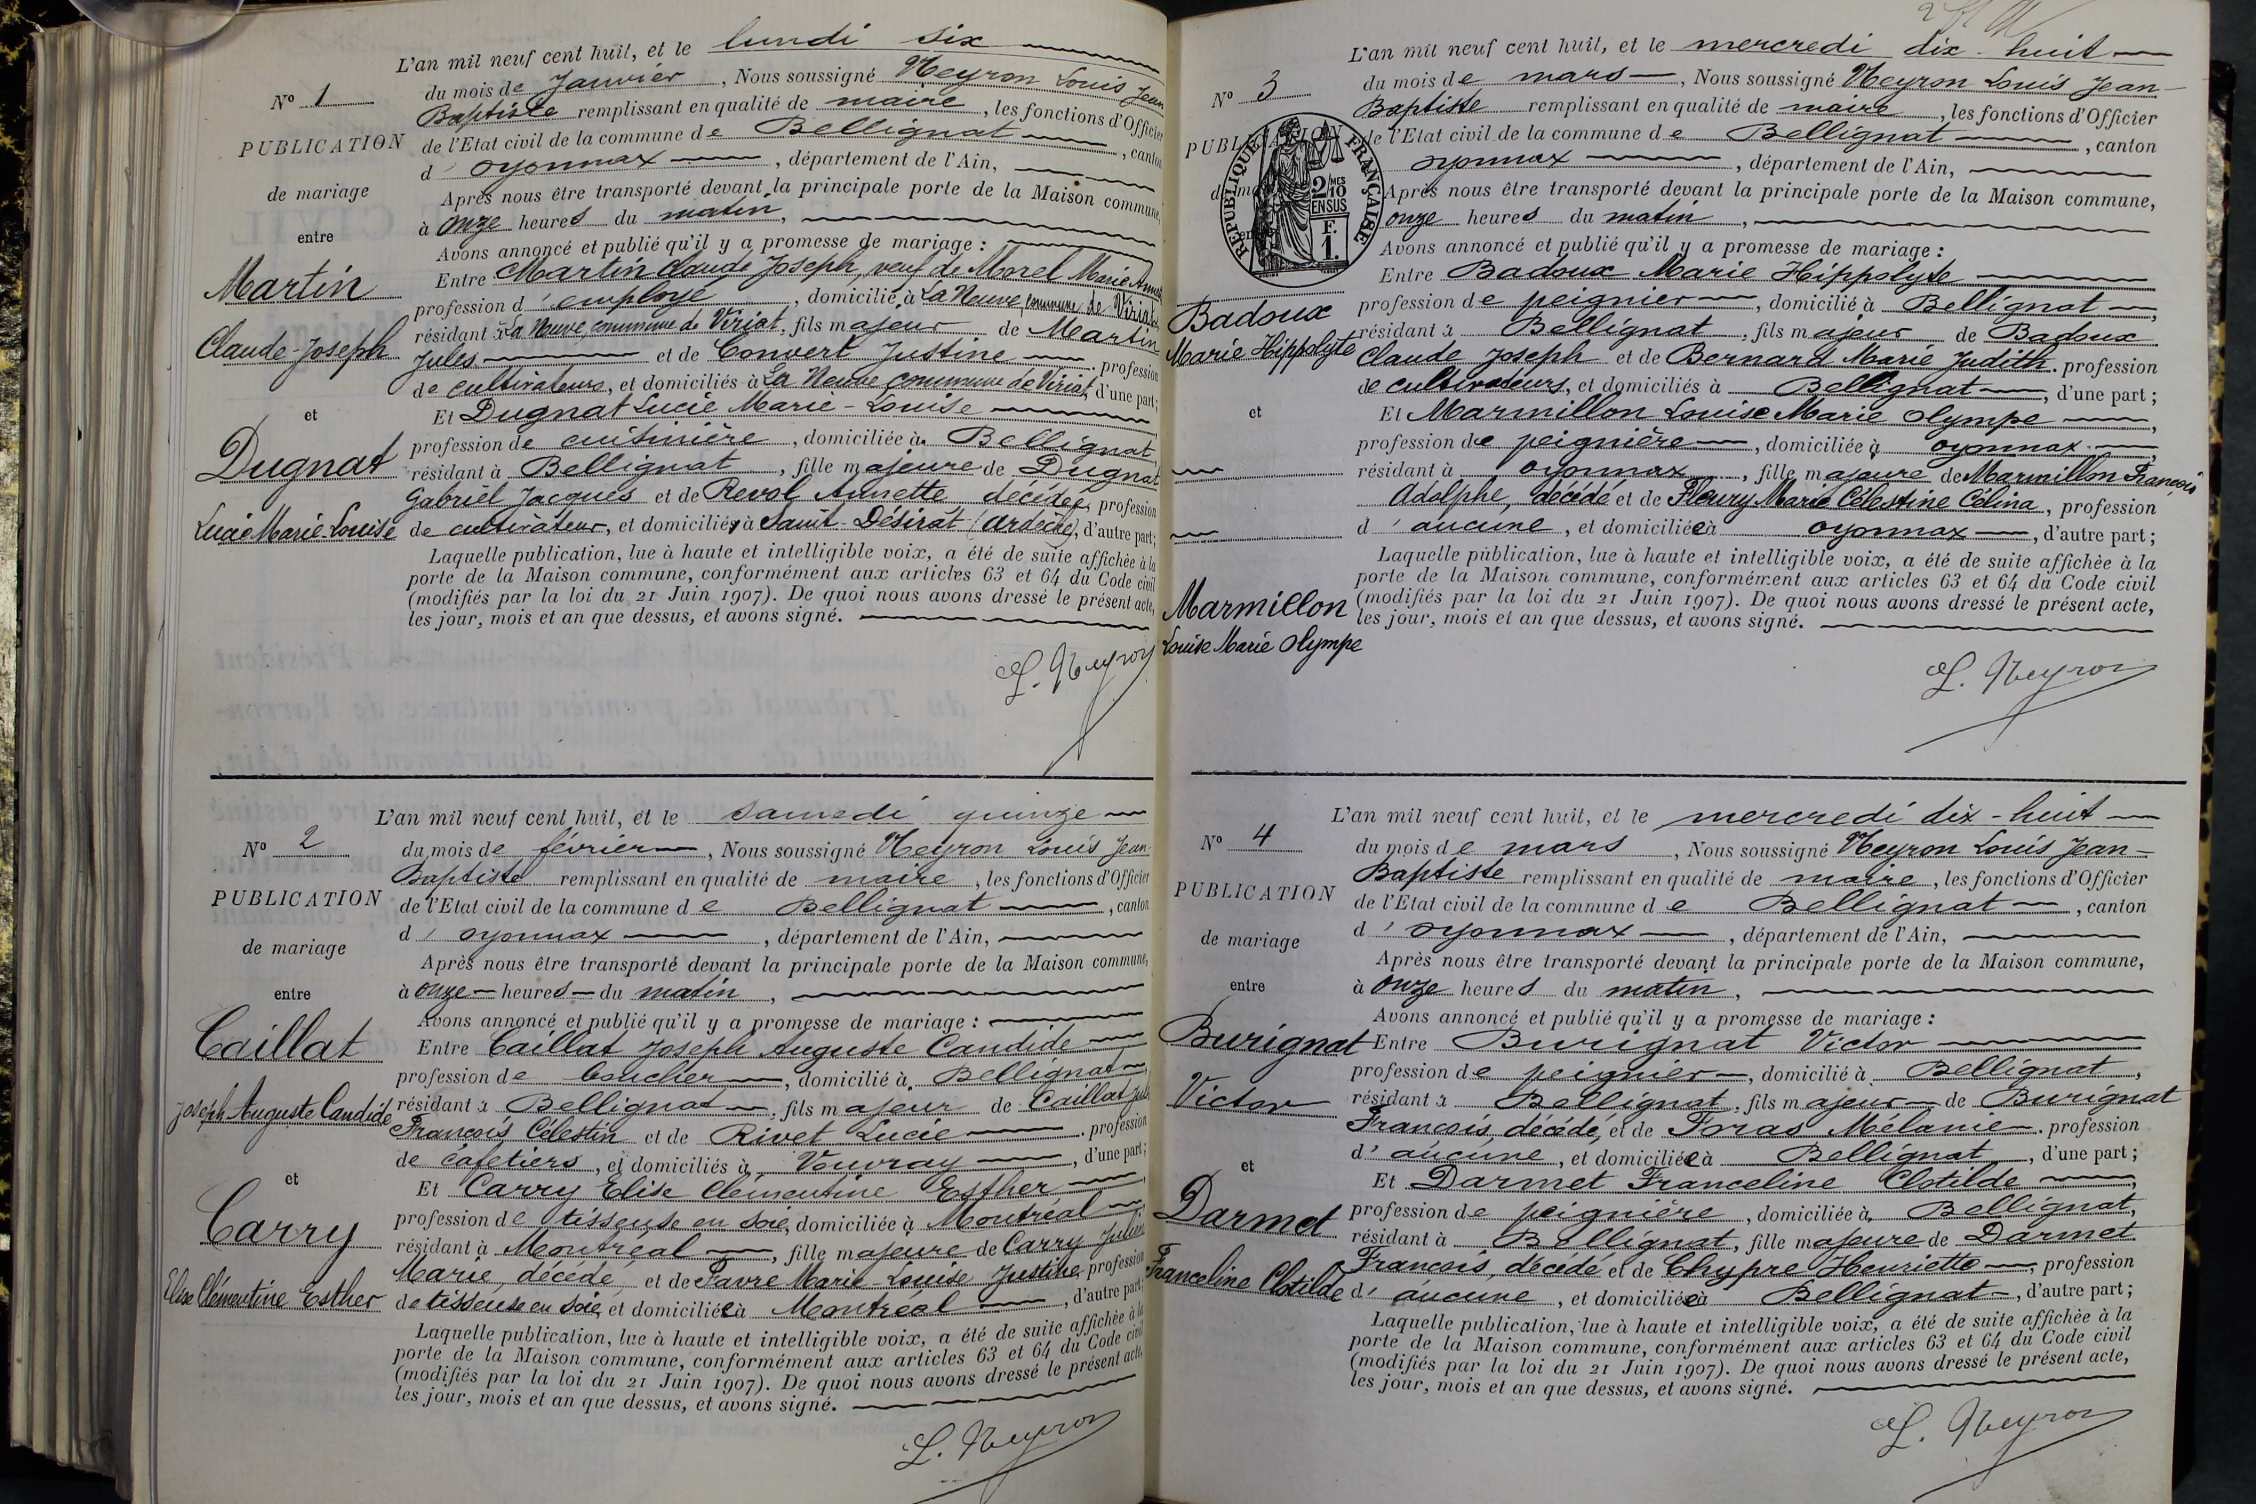 L'an mil neuf cent huit, et le lundi six
N° 1
du mois de Janvier, Nous soussigné Neyron Louis Jean
Baptiste remplissant en qualité de maire, les fonctions d'Officier
PUBLICATION
de l'Etat civil de la commune de Bellignat, canton
d'oyonnax, département de l'Ain,
de mariage
Après nous être transporté devant la principale porte de la Maison commune,
à onze heures du matin,
entre
Avons annoncé et publié qu'il y a promesse de mariage :
Martin
Entre Martin Claude Joseph, veuf de Morel Marie
profession d'employé, domicilié à La Neuve commune de Viriat,
Claude-Joseph
résidant à La Neuve, commune de Viriat, fils majeur de Martin
Jules et de Convert Justine, profession
de cultivateurs, et domiciliés à La Neuve commune de Viriat, d'une part;
et
Et Dugnat Lucie Marie-Louise
Dugnat
profession de cuisinière, domiciliée à Bellignat
résidant à Bellignat, fille majeure de Dugnat
Gabriel Jacques et de Revol Annette décédée, profession
Lucie Marie-Louise
de cultivateur, et domicilié à Saint-Désirat (Ardèche), d'autre part;
Laquelle publication, lue à haute et intelligible voix, a été de suite affichée à la
porte de la Maison commune, conformément aux articles 63 et 64 du Code civil
(modifiés par la loi du 21 Juin 1907). De quoi nous avons dressé le présent acte,
les jour, mois et an que dessus, et avons signé.
L. Neyron
L'an mil neuf cent huit, et le samedi quinze
N° 2
du mois de février, Nous soussigné Neyron Louis Jean-
Baptiste remplissant en qualité de maire, les fonctions d'Officier
PUBLICATION
de l'Etat civil de la commune de Bellignat, canton
d'oyonnax, département de l'Ain,
de mariage
Après nous être transporté devant la principale porte de la Maison commune,
entre
à onze heures du matin,
Avons annoncé et publié qu'il y a promesse de mariage :
Caillat
Entre Caillat Joseph Auguste Candide
profession de boucher, domicilié à Bellignat
Joseph Auguste Candide
résidant à Bellignat, fils majeur de Caillat
François Célestin et de Rivet Lucie, profession
de cafetiers, et domiciliés à Vouvray, d'une part;
et
Et Carry Elise Clémentine Esther
Carry
profession de tisseuse en soie, domiciliée à Montréal
résidant à Montréal, fille majeure de Carry Julien
Marie, décédé, et de Favre Marie-Louise Justine, profession
Elise Clémentine Esther
de tisseuse en soie, et domiciliée à Montréal, d'autre part;
Laquelle publication, lue à haute et intelligible voix, a été de suite affichée à la
porte de la Maison commune, conformément aux articles 63 et 64 du Code civil
(modifiés par la loi du 21 Juin 1907). De quoi nous avons dressé le présent acte,
les jour, mois et an que dessus, et avons signé.
L. Neyron
L'an mil neuf cent huit, et le mercredi dix-huit
N° 3
du mois de mars, Nous soussigné Neyron Louis Jean-
Baptiste remplissant en qualité de maire, les fonctions d'Officier
PUBLICATION
de l'Etat civil de la commune de Bellignat, canton
oyonnax, département de l'Ain,
RÉPUBLIQUE FRANÇAISE
2/10MES
EN SUS
F.
1.
Après nous être transporté devant la principale porte de la Maison commune,
onze heures du matin,
Avons annoncé et publié qu'il y a promesse de mariage :
Entre Badoux Marie Hippolyte
Badoux
profession de peignier, domicilié à Bellignat,
résidant à Bellignat, fils majeur de Badoux
Marie Hippolyte
Claude Joseph et de Bernard Marie Judith, profession
de cultivateurs, et domiciliés à Bellignat, d'une part;
et
Et Marmillon Louise Marie Olympe,
profession de peignière, domiciliée à oyonnax,
résidant à oyonnax, fille majeure de Marmillon François
Adolphe, décédé et de Fleury Marie Célestine Célina, profession
d'aucune, et domiciliée à oyonnax, d'autre part;
Laquelle publication, lue à haute et intelligible voix, a été de suite affichée à la
porte de la Maison commune, conformément aux articles 63 et 64 du Code civil
Marmillon
(modifiés par la loi du 21 Juin 1907). De quoi nous avons dressé le présent acte,
les jour, mois et an que dessus, et avons signé.
Louise Marie Olympe
L. Neyron
L'an mil neuf cent huit, et le mercredi dix-huit
N° 4
du mois de mars, Nous soussigné Neyron Louis Jean-
Baptiste remplissant en qualité de maire, les fonctions d'Officier
PUBLICATION
de l'Etat civil de la commune de Bellignat, canton
d'oyonnax, département de l'Ain,
de mariage
Après nous être transporté devant la principale porte de la Maison commune,
entre
à onze heures du matin,
Avons annoncé et publié qu'il y a promesse de mariage :
Burignat
Entre Burignat Victor
profession de peignier, domicilié à Bellignat,
Victor
résidant à Bellignat, fils majeur de Burignat
François, décédé, et de Foras Mélanie, profession
d'aucune, et domiciliée à Bellignat, d'une part;
et
Et Darmet Franceline Clotilde,
Darmet
profession de peignière, domiciliée à Bellignat,
résidant à Bellignat, fille majeure de Darmet
François, décédé et de Chypre Henriette, profession
Franceline Clotilde
d'aucune, et domiciliée à Bellignat, d'autre part;
Laquelle publication, lue à haute et intelligible voix, a été de suite affichée à la
porte de la Maison commune, conformément aux articles 63 et 64 du Code civil
(modifiés par la loi du 21 Juin 1907). De quoi nous avons dressé le présent acte,
les jour, mois et an que dessus, et avons signé.
L. Neyron